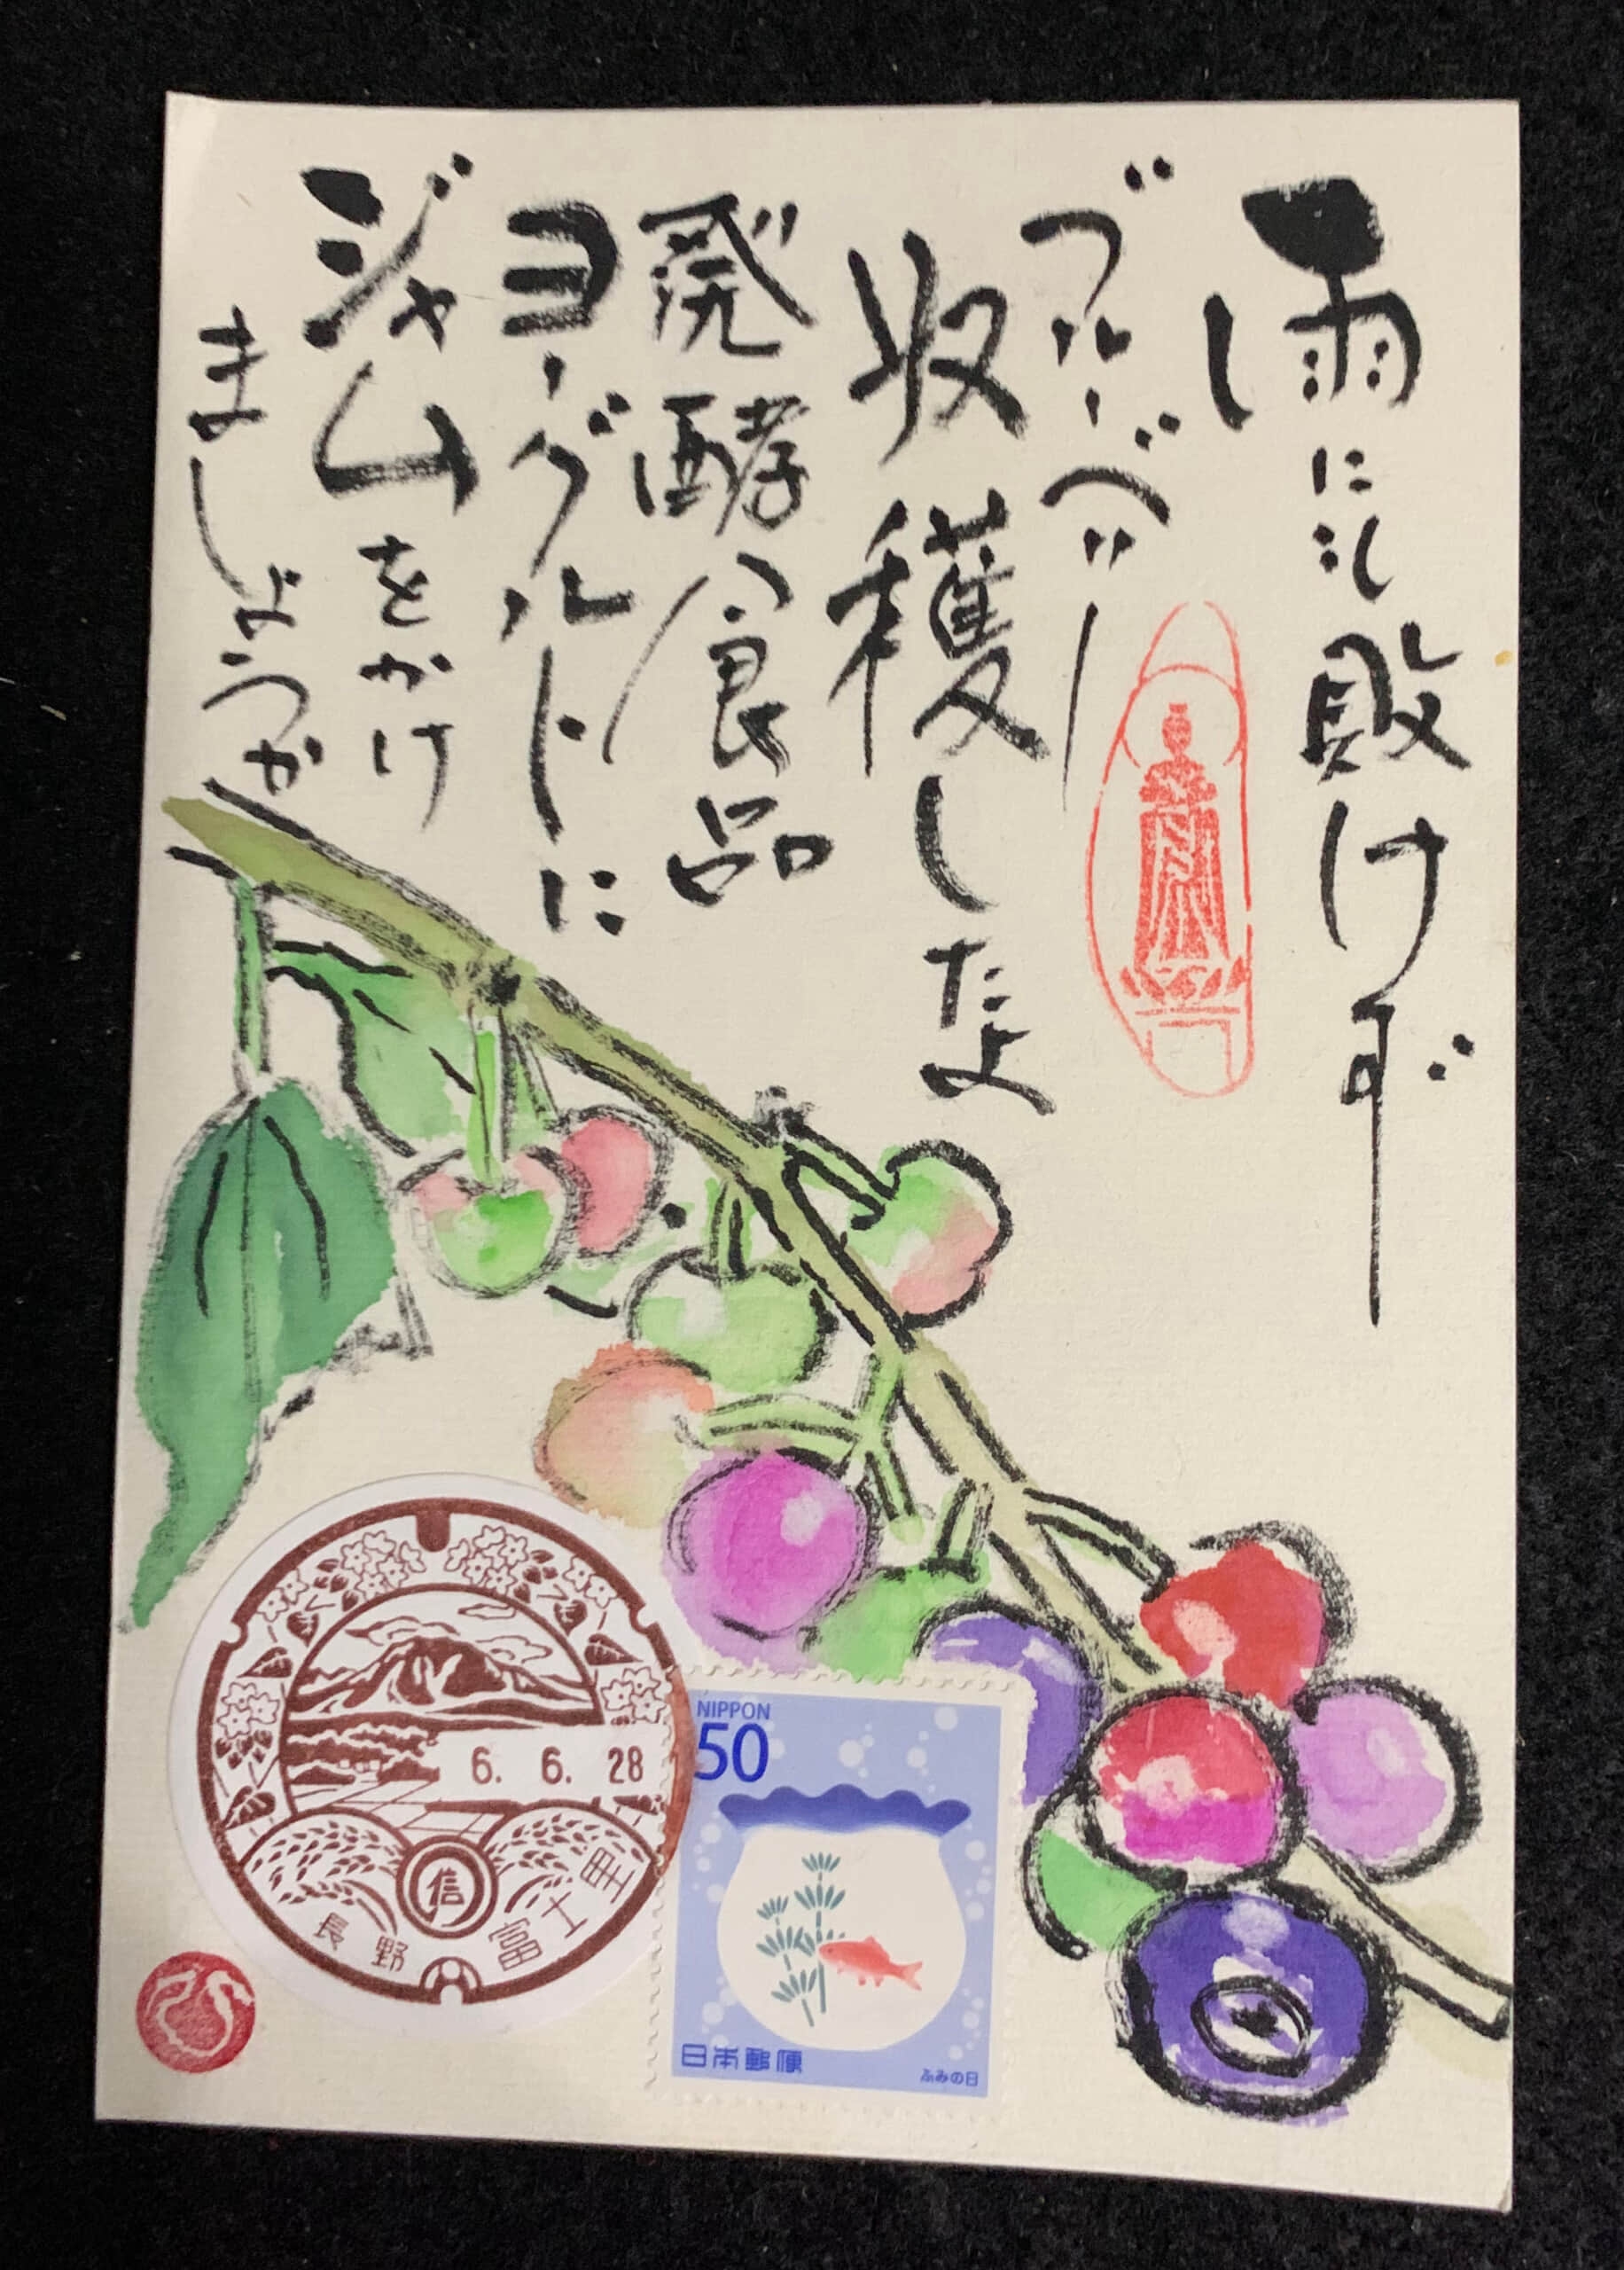 雨にも敗けず
ブルーベリー
収穫したよ
発酵食品
ヨーグルトに
ジャムをかけ
ましょうか
6. 6. 28
信
長野 富士里
NIPPON
50
日本郵便
ふみの日